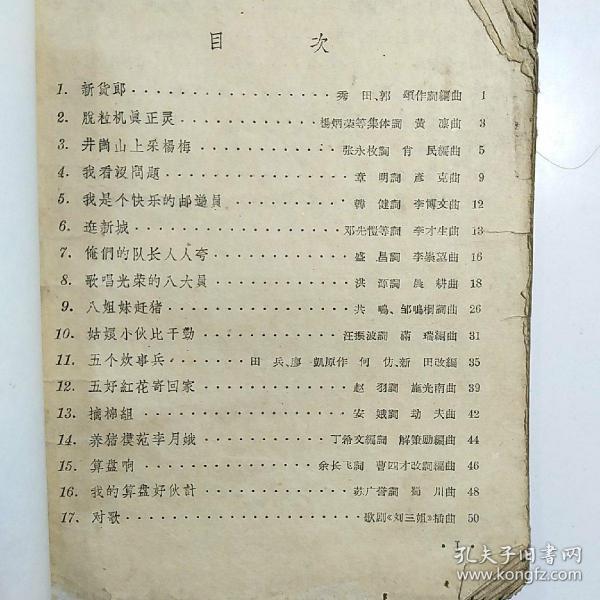 目 次
1. 新货郎 秀 田、郭 頌作詞編曲 1
2. 脫粒机眞正灵 楊炳荣等集体詞 黃 凛曲 3
3. 井崗山上采楊梅 张永枚詞 肖 民編曲 5
4. 我看沒問題 章 明詞 彥 克曲 9
5. 我是个快乐的邮递員 韓 健詞 李博文曲 12
6. 逛新城 邓先愷等詞 李才生曲 13
7. 俺們的队长人人夸 盛 昌詞 李崇望曲 16
8. 歌唱光荣的八大員 洪 源詞 晨 耕曲 18
9. 八姐妹赶猪 共 鳴、邹鳴桐詞曲 26
10. 姑娘小伙比干勁 汪振波詞 滿 瑞編曲 31
11. 五个炊事兵 田 兵、廖 凱原作 何 仿、新 田改編 35
12. 五好紅花寄回家 赵 羽詞 施光南曲 39
13. 摘棉組 安 娥詞 劫 夫曲 42
14. 养猪模范李月娥 丁希文編詞 解策励編曲 44
15. 算盘响 余长飞詞 曹四才改詞編曲 46
16. 我的算盘好伙計 苏广誉詞 蜀 川曲 48
17. 对歌 歌剧《刘三姐》插曲 50
· I ·
孔夫子旧书网
www.kongfz.com